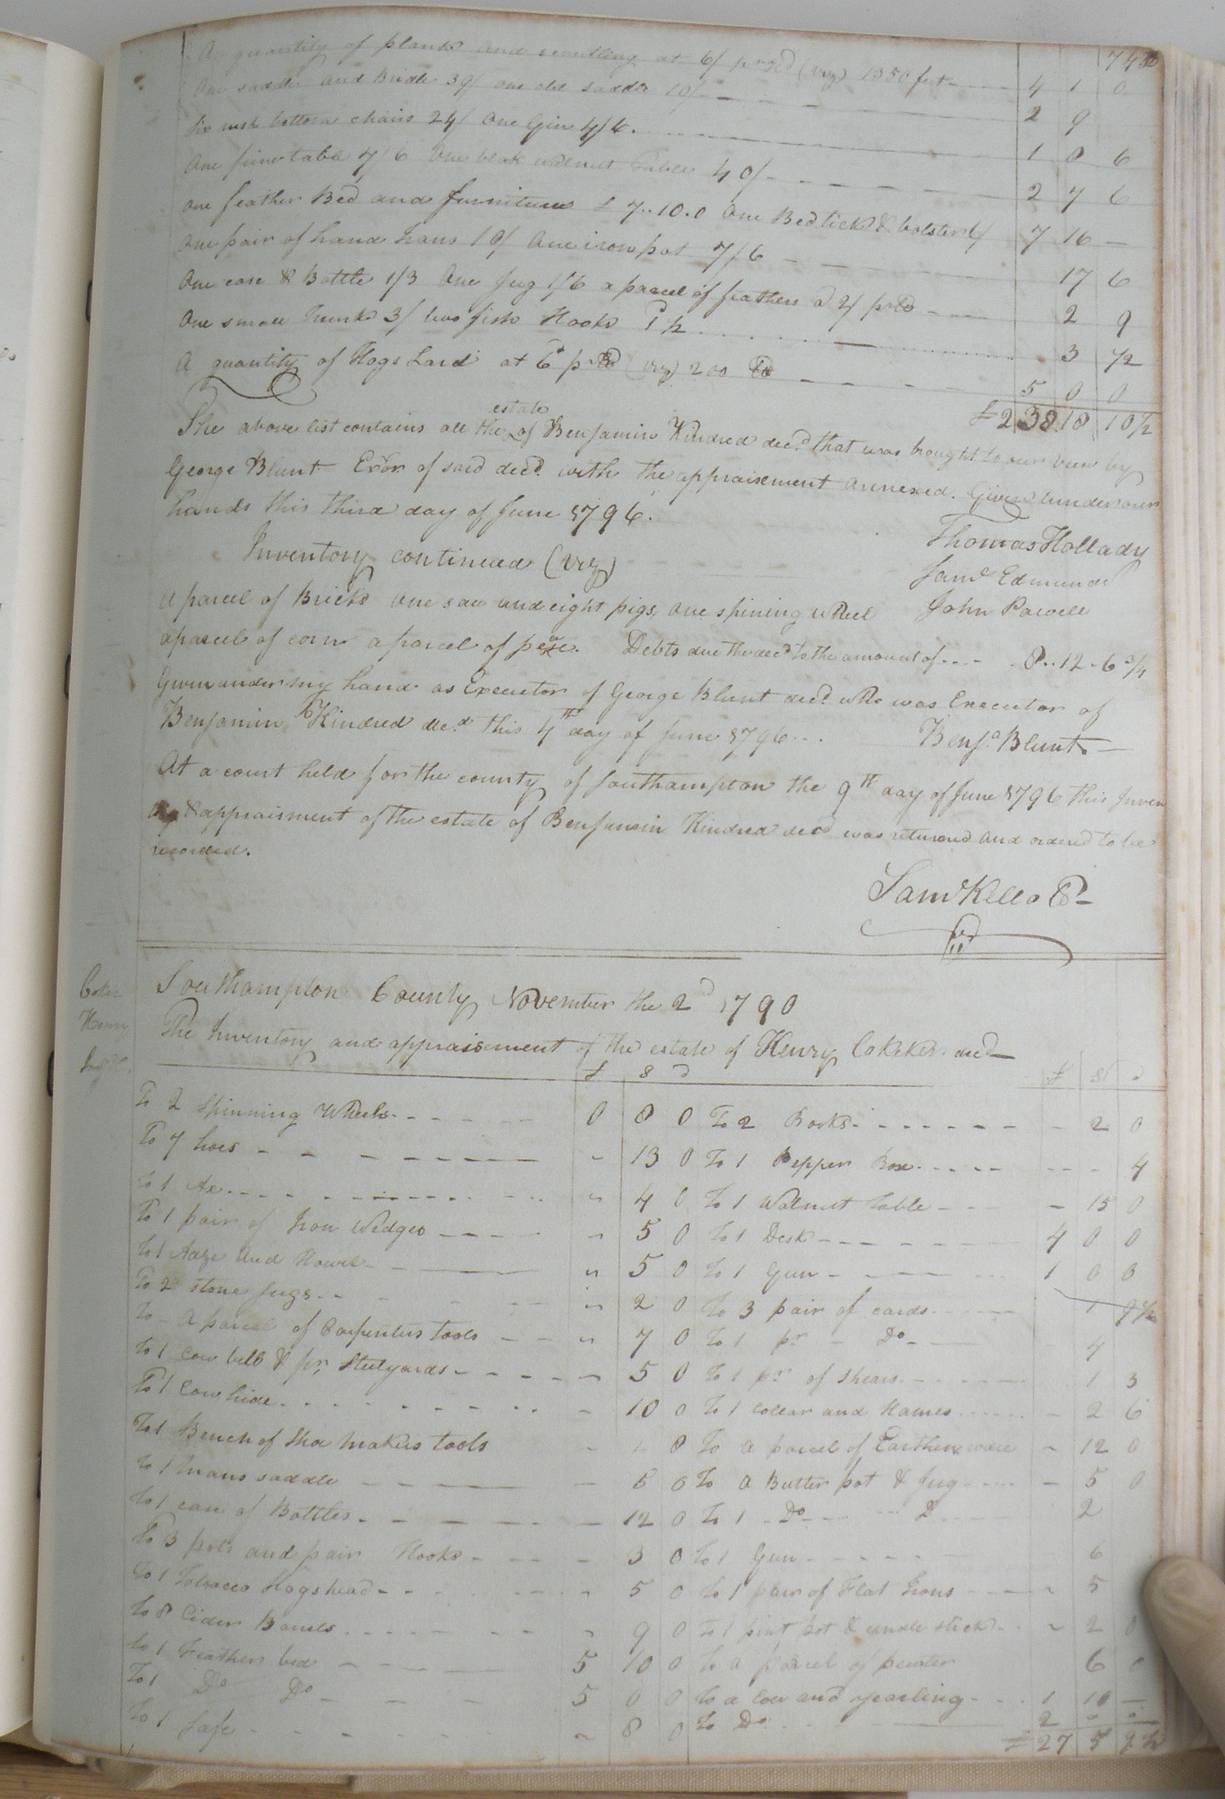 A quantity of plank and scantling at 6/ pr Cd (viz) 1350 feet 4 1 0
One saddle and Bridle 39/ one old saddle 10/ 2 9
Six rush bottom chairs 24/ One Gin 4/6. 1 8 6
One pine table 7/6 One black walnut Table 40/ 2 7 6
One feather Bed and furniture £ 7..10.0 One Bed tick & bolster 6/ 7 16 —
One pair of hand Irons 10/ One iron pot 7/6 17 6
One case & Bottle 1/3 One Jug 1/6 a parcel of feathers 2 9
One small Trunk 3/ two fish Hooks 1/2 3 1/2
A quantity of Hogs Lard at 6d pr lb (viz) 200 lb 5 0 0
£ 238 18 10 1/2
The above list contains all the estate of Benjamin Kindred decd. that was brought to our view by
George Blunt Exor of said decd. with the appraisement annexed. Given under our
hands this third day of June 1796.
Thomas Hollady
Inventory continued (viz)
Saml Edmunds
A parcel of Bricks one sow and eight pigs, one spining wheel John Powell
a parcel of corn a parcel of pease. Debts due the decd to the amount of 8..12.6 3/4
Given under my hand as Executor of George Blunt decd. who was Executor of
Benjamin Kindred decd this 4th day of June 1796...
Benja. Blunt
At a court held for the county of Southampton the 9th day of June 1796 this Inven
& appraisment of the estate of Benjamin Kindred decd was returned and ordered to be
recorded.
Saml Kello
Southampton County November the 2d 1790
The Inventory and appraisement of the estate of Henry Cokeker decd
£ S D £ S D
To 2 Spinning Wheels 0 8 0 To 2 Books 2 0
To 7 hoes 13 0 To 1 Pepper Box 4
To 1 Ax 4 0 To 1 Walnut table 15 0
To 1 pair of Iron Wedges 5 0 To 1 Desk 4 0 0
To 1 Adze and Howel 5 0 To 1 Gun 1 0 0
To 2 stone jugs 2 0 To 3 pair of cards 1
To A parcel of Carpenters tools 7 0 To 1 pr Do 4
To 1 Cow bell & pr. Steelyards 5 0 To 1 pr of shears 1 3
To 1 Cow hide 10 0 To 1 collar and Hames 2 6
To 1 Bench of Shoe makers tools 8 To a parcel of Earthen ware 12 0
To 1 mans saddle 5 0 To a Butter pot & Jug 5 0
To 1 case of Bottles 12 0 To 1 Do 2
To 3 pots and pair Hooks 3 0 To 1 Gun 6
To 1 Tobacco Hogshead 5 0 To 1 pair of Flat Irons 5
To 8 Cider Barrels 9 0 To 1 pint pot & candle stick 2 0
To 1 Feather bed 5 10 0 To a parcel of pewter 6
To 1 Do Do 5 0 0 To a cow and yearling 1 10 —
To 1 Safe 8 0 To Do 2 0 0
£ 27 5